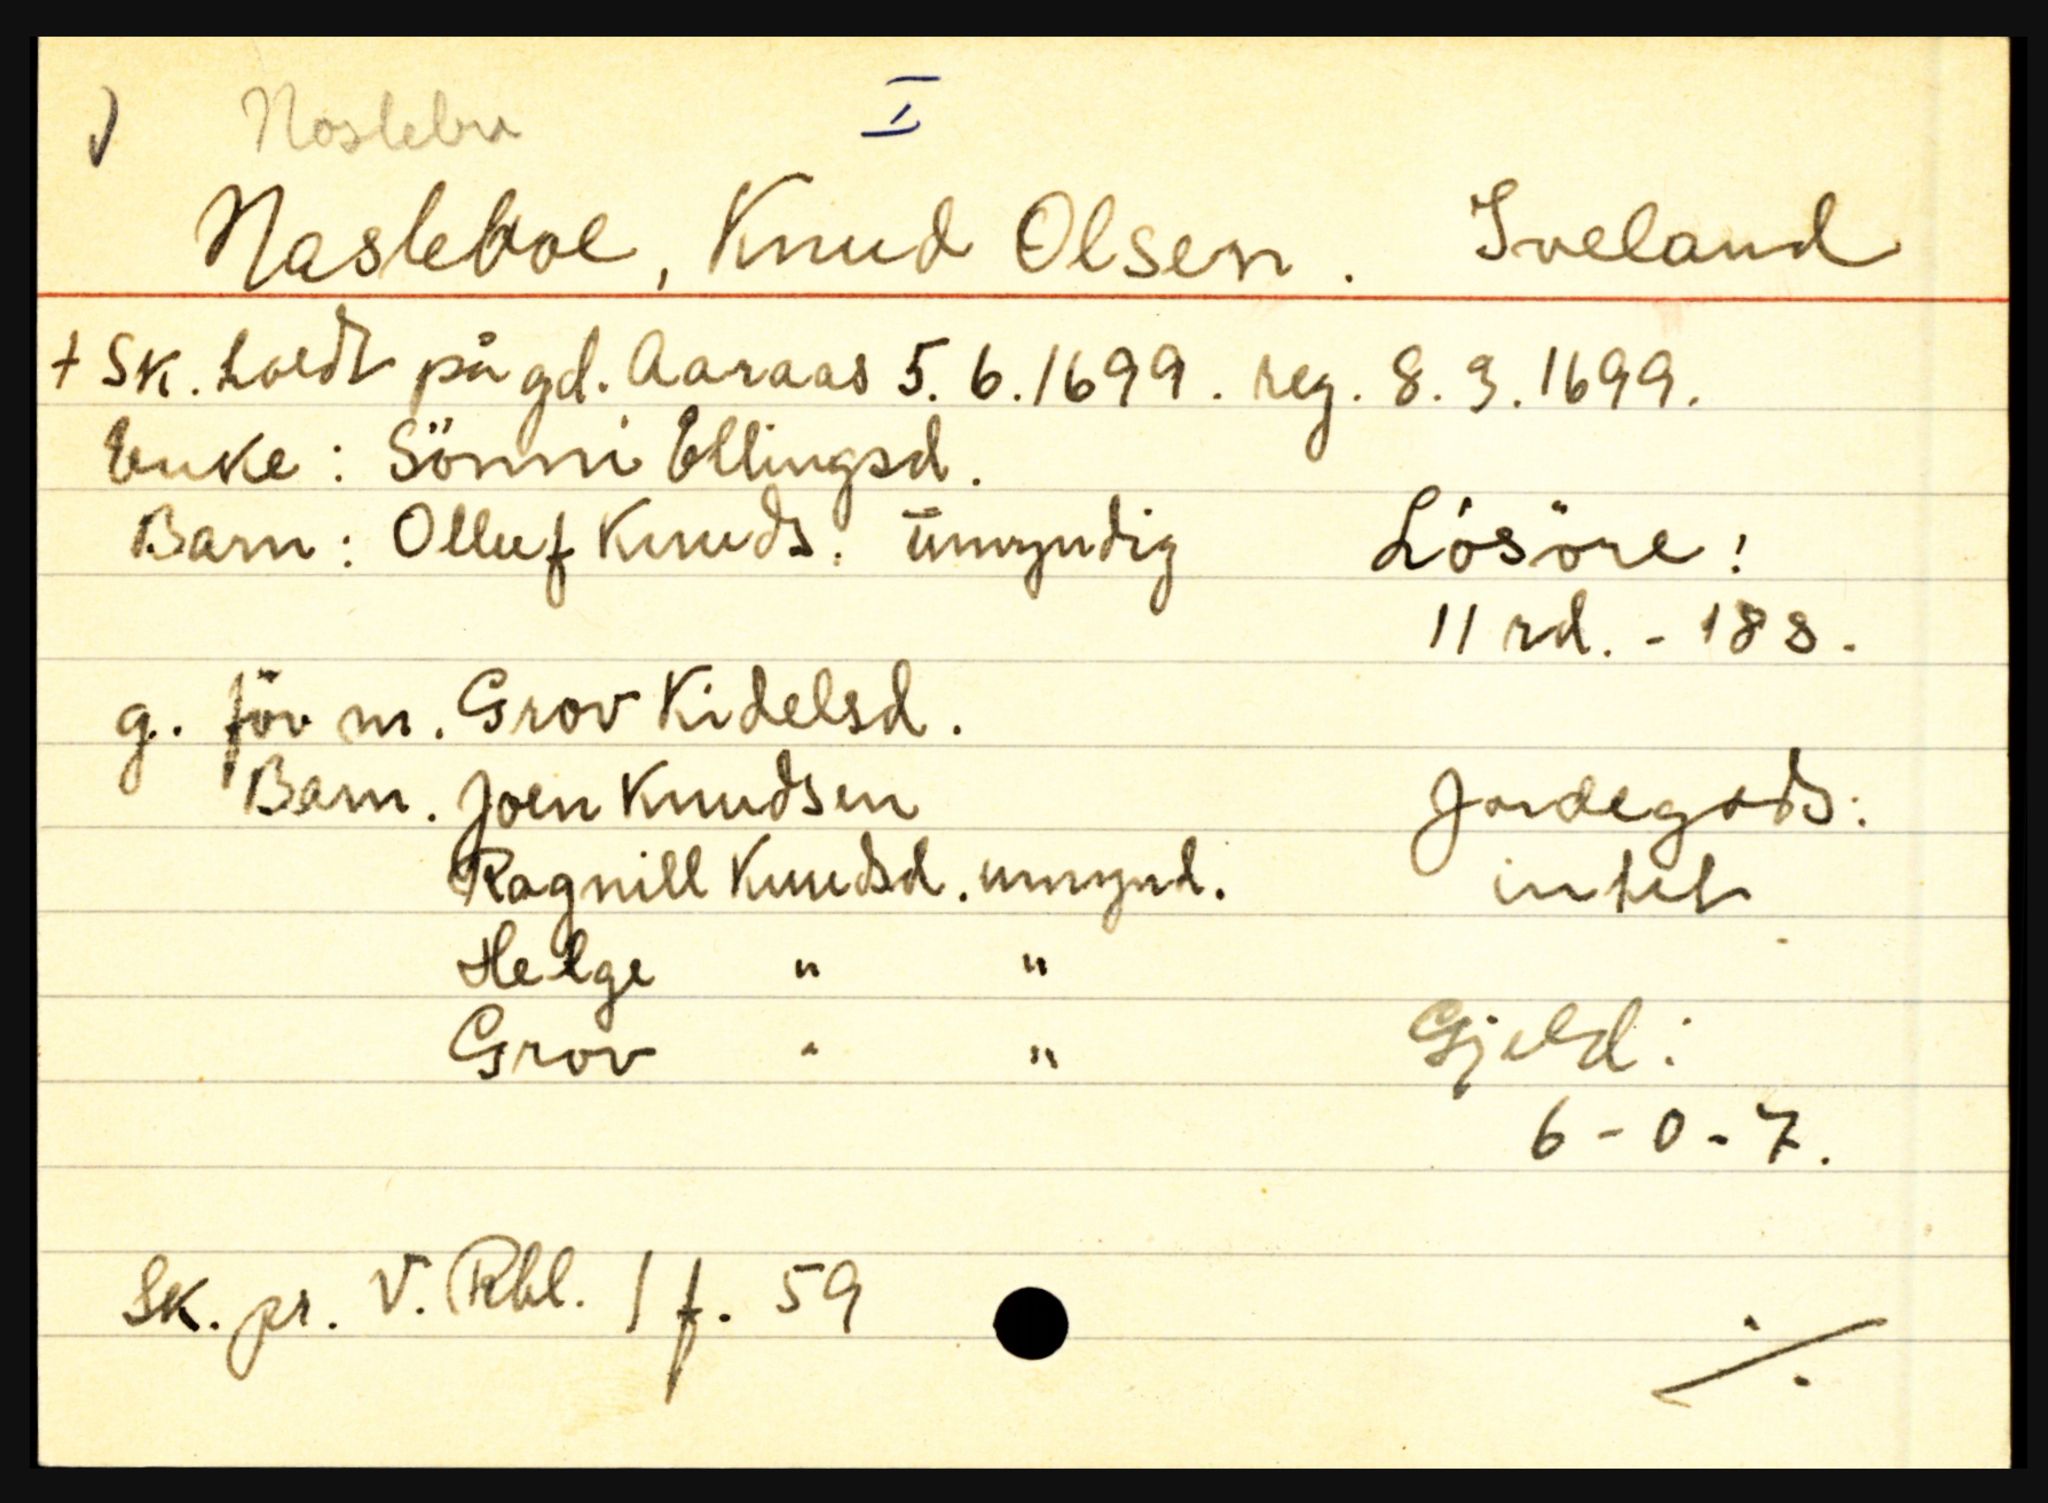 Naslebu I
Nasleboe, Knud Olsen. Iveland
+ Sk. holdt på gd. Aaraas 5.6.1699. reg. 8.3.1699.
Enke: Sönni Ellingsd.
Barn: Olluf Knuds. umyndig Lösöre:
11 rd. - 18 s.
g. för m. Grov Kidelsd.
Barn. Joen Knudsen Jordegods:
Ragnill Knudsd. umynd. intet
Helge " "
Grov " " Gjeld:
6 - 0 - 7.
Sk. pr. V. Rbl. 1 f. 59 ./.